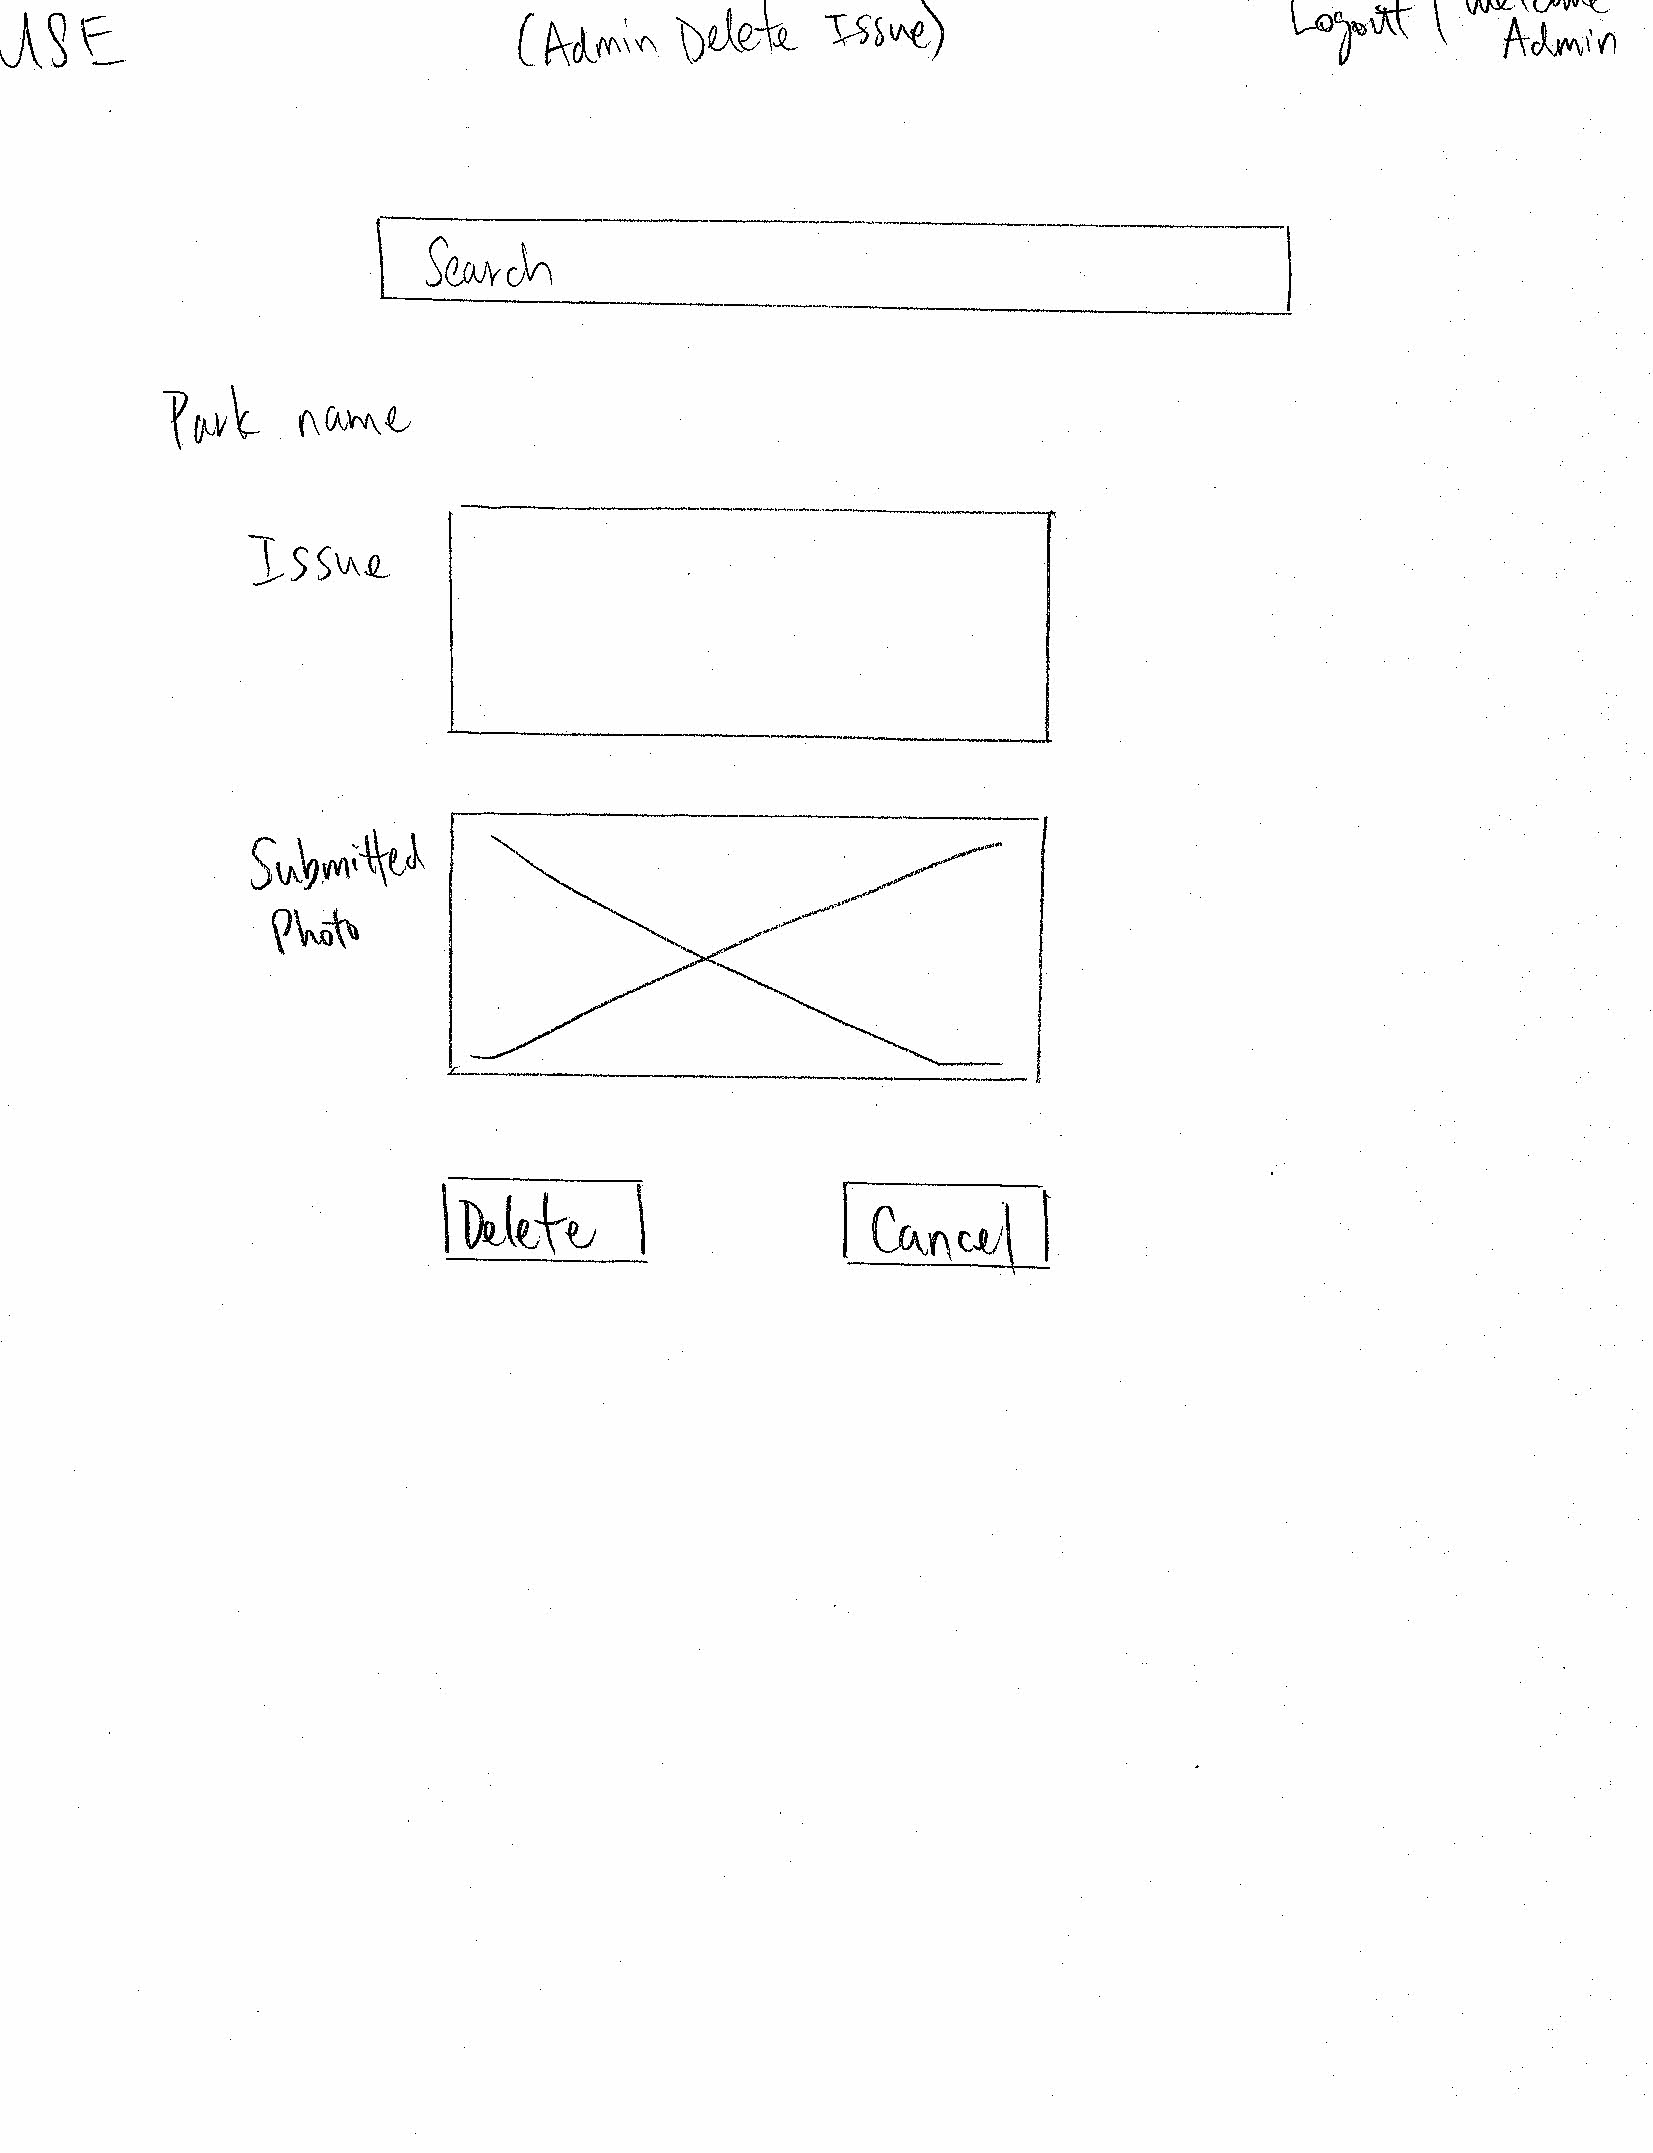 USE
(Admin Delete Issue)
Logout | Welcome
Admin
Search
Park name
Issue
Submitted
Photo
Delete
Cancel